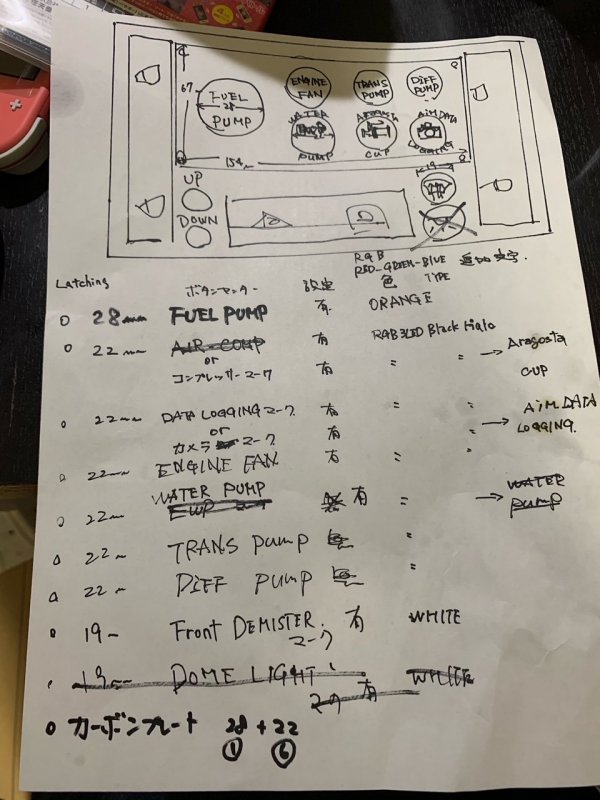 FUEL
28
PUMP
ENGINE
FAN
TRANS
PUMP
DIFF
PUMP
67
WATER
PUMP
ARAGOSTA
CUP
AiM DATA
LOGGING
154
19
UP
DOWN
RGB
RED-GREEN-BLUE
Latching
ボタンマーク
設定
色
TYPE
文字
28mm FUEL PUMP 有 ORANGE
22mm AIR-COMP 有 RGB 3LED Black Halo → Aragosta
or
コンプレッサーマーク 有 〃 〃 CUP
22mm DATA LOGGING マーク 有 〃 〃 → AiM DATA
or
カメラ マーク 有 〃 LOGGING
22mm ENGINE FAN 有 〃 〃
WATER PUMP
22mm EWP 有 〃 → WATER
pump
22m TRANS pump 〃
22m DIFF pump 〃
19m Front DEMISTER 有 WHITE
マーク
19mm DOME LIGHT WHITE
有
カーボンプレート 28 + 22
① ⑥